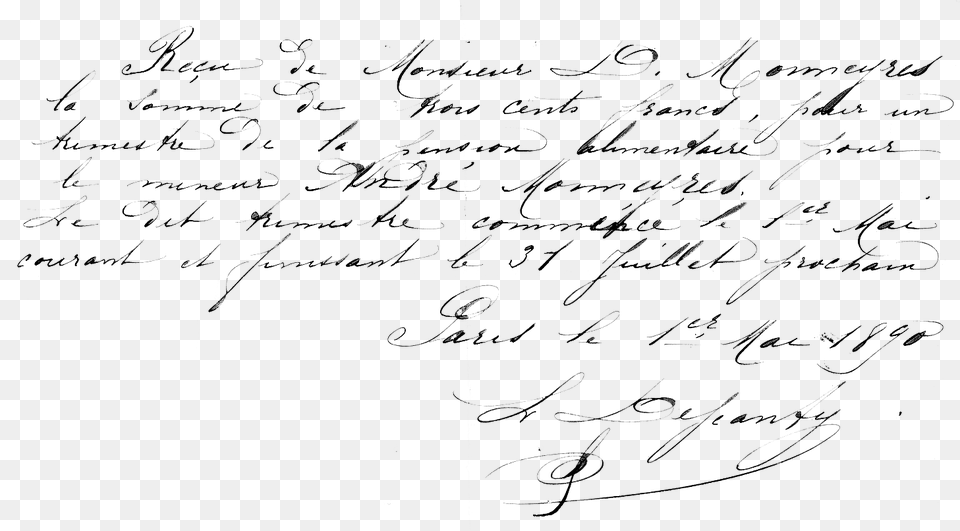 Reçu de Monsieur D. Monneyres
la somme de trois cents francs, pour un
trimestre de la pension alimentaire pour
le mineur André Monneyres.
Le dit trimestre commencé le 1er Mai
courant et finissant le 31 Juillet prochain
Paris le 1er Mai 1890